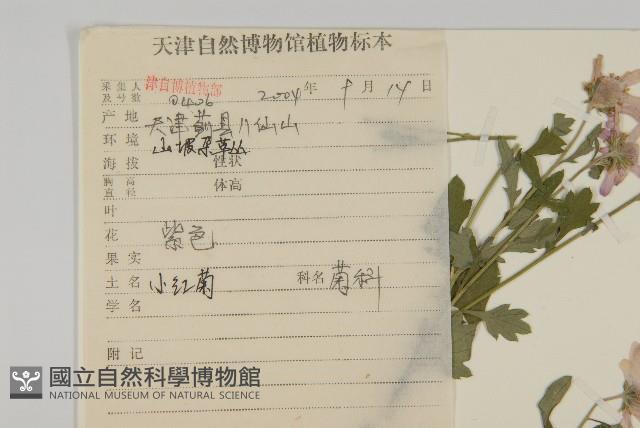 天津自然博物馆植物标本
采集人及号数 津自博植物部 2004年9月14日
产地 天津蓟县八仙山
环境 山坡杂草丛
海拔 性状
胸高直径 体高
叶
花 紫色
果实
土名 小红菊 科名 菊科
学名
附记
國立自然科學博物館
NATIONAL MUSEUM OF NATURAL SCIENCE